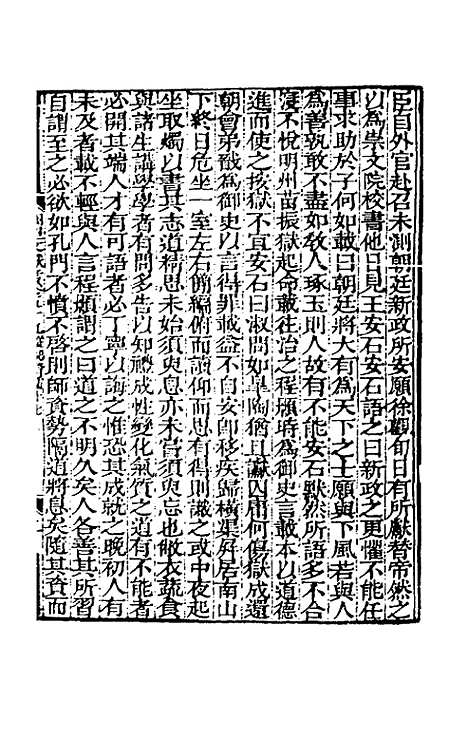 臣自外官赴召未測朝廷新政所安願徐觀旬日有所獻替帝然之
以為崇文院校書他日見王安石安石語之曰新政之更懼不能任
事求助於子何如載曰朝廷將大有為天下之士願與下風若與人
為善孰敢不盡如敎人琢玉則人故有不能安石默然所語多不合
寖不悅明州苗振獄起命載往治之程顥時為御史言載本以道德
進而使之按獄不宜安石曰淑問如皐陶猶且讞囚庸何傷獄成還
朝會弟戩為御史以言得罪載益不自安即移疾歸橫渠屛居南山
下終日危坐一室左右簡編俯而讀仰而思有得則識之或中夜起
坐取燭以書其志道精思未始須臾息亦未嘗須臾忘也敝衣蔬食
與諸生講學學者有問多告以知禮成性變化氣質之道有不能者
必開其端人才有可語者必丁寧以誨之惟恐其成就之晚初人有
未及者載不輕與人言程顥謂之曰道之不明久矣人各善其所習
自謂至之必欲如孔門不憤不啓則師資勢隔道將息矣隨其資而